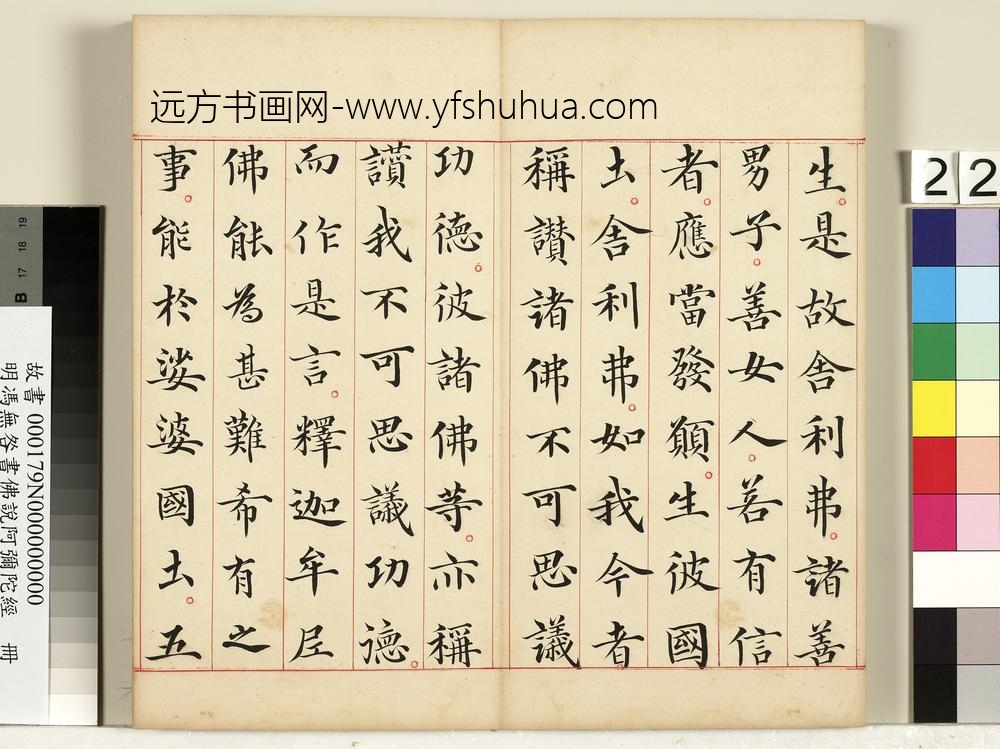 远方书画网-www.yfshuhua.com
生是故舍利弗諸善
男子善女人若有信
者應當發願生彼國
土舍利弗如我今者
稱讚諸佛不可思議
功德彼諸佛等亦稱
讚我不可思議功德
而作是言釋迦牟尼
佛能為甚難希有之
事能於娑婆國土五
22
19
18
17
B
故書 000179N000000000
明馮無咎書佛說阿彌陀經 冊